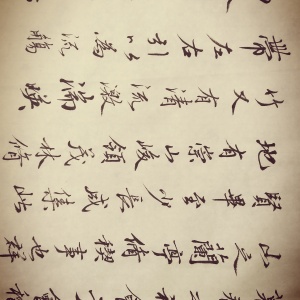 山之蘭亭脩禊事也群
賢畢至少長咸集此
地有崇山峻領茂林脩
竹又有清流激湍映
帶左右引以為流觴